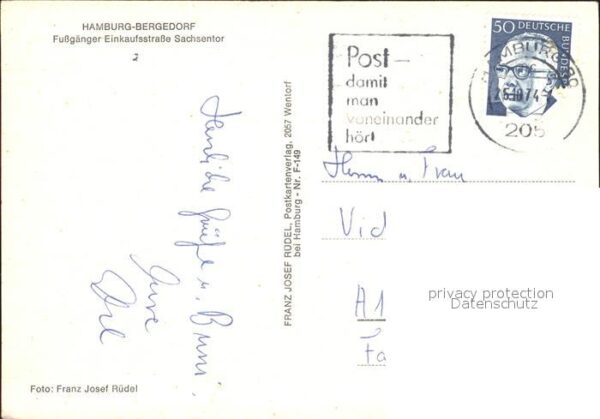 HAMBURG-BERGEDORF
Fußgänger Einkaufsstraße Sachsentor
2
Herzliche
Grüße u. Bussi
Eure
Foto: Franz Josef Rüdel
FRANZ JOSEF RÜDEL, Postkartenverlag, 2057 Wentorf
bei Hamburg - Nr. F-149
Post –
damit
man
voneinander
hört
50 DEUTSCHE
BUNDESPOST
HAMBURG 80
74
205
Herrn u. Frau
Vid
A1
privacy protection
Datenschutz